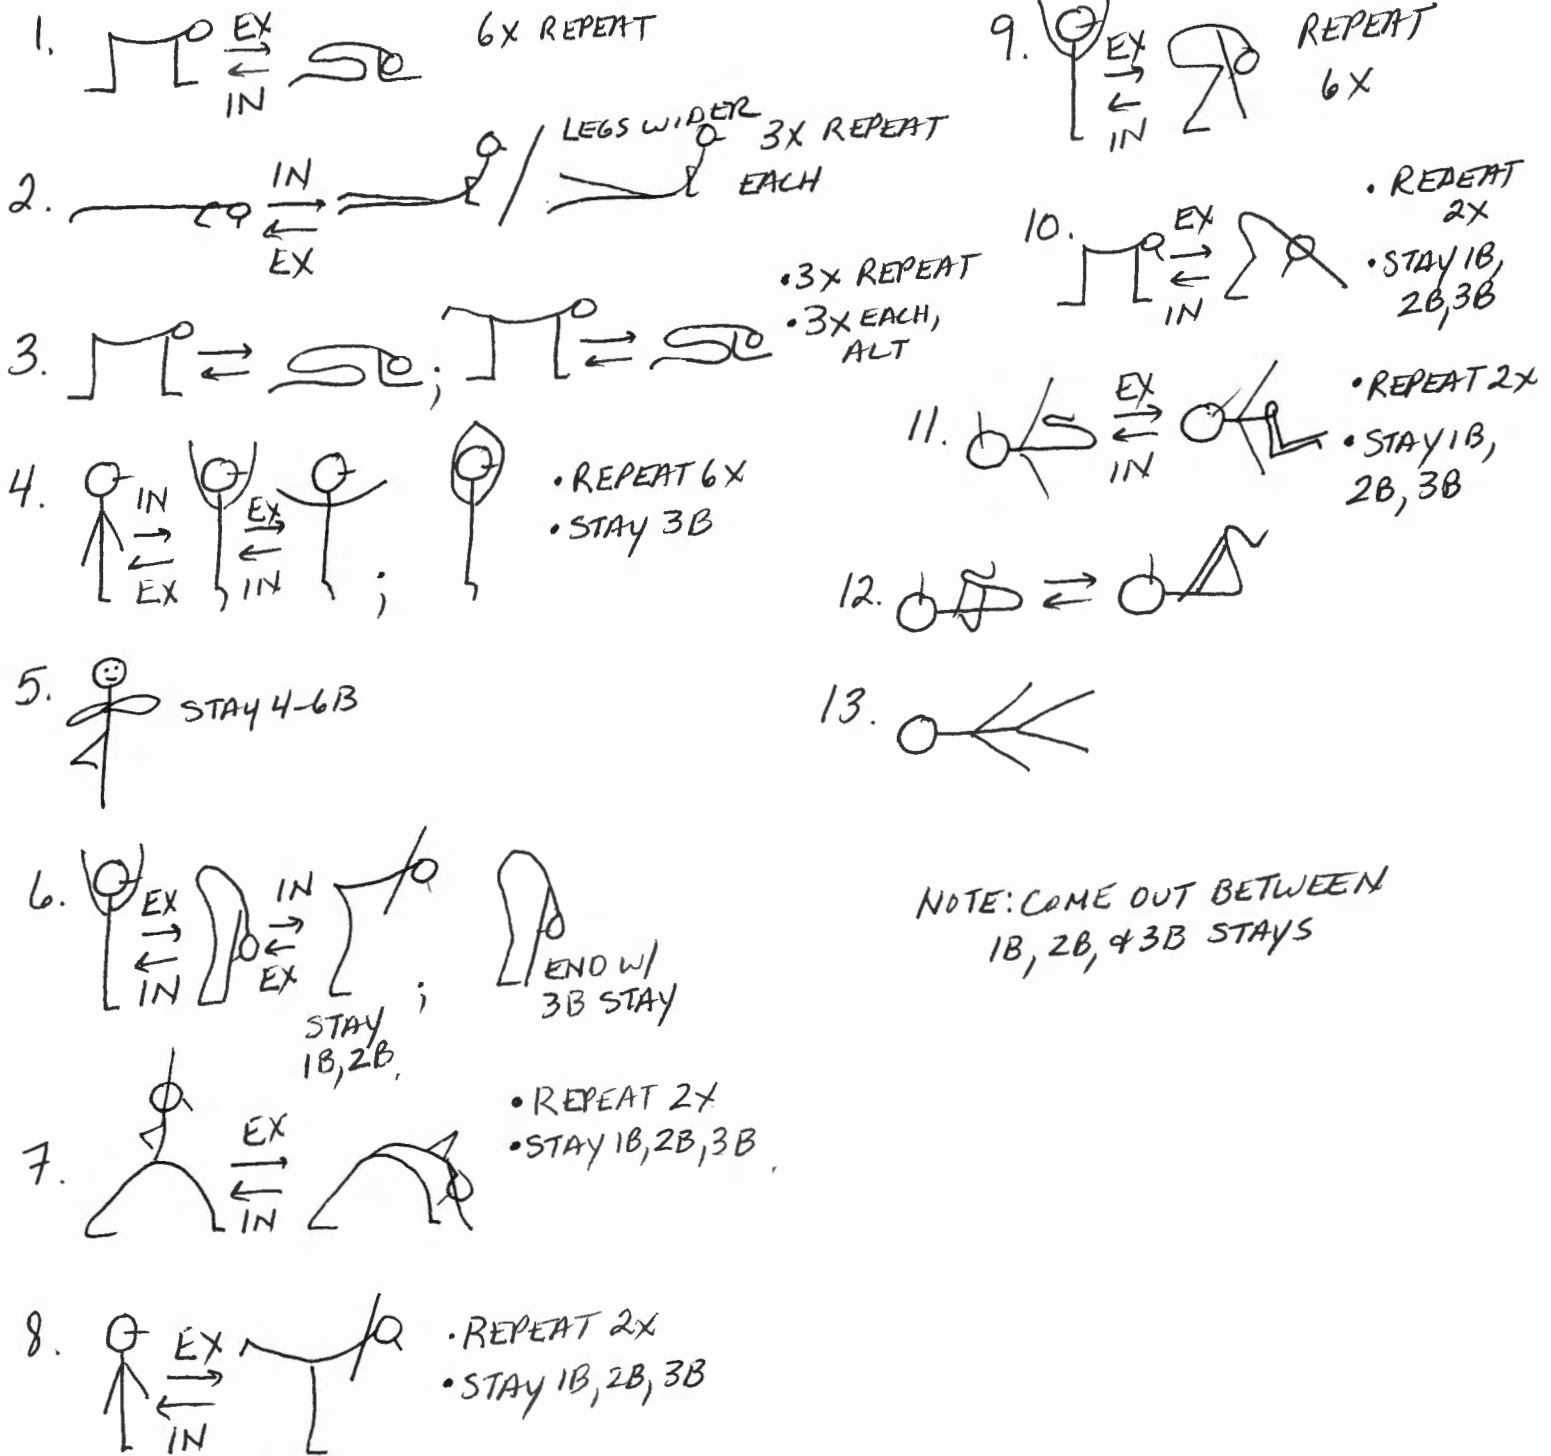 1.
EX
IN
6X REPEAT
2.
IN
EX
LEGS WIDER
3X REPEAT
EACH
3.
;
•3X REPEAT
•3X EACH,
ALT
4.
IN
EX
EX
IN
;
•REPEAT 6X
•STAY 3B
5.
STAY 4-6B
6.
EX
IN
IN
EX
STAY
1B, 2B.
;
END W/
3B STAY
7.
EX
IN
•REPEAT 2X
•STAY 1B, 2B, 3B.
8.
EX
IN
•REPEAT 2X
•STAY 1B, 2B, 3B
9.
EX
IN
REPEAT
6X
10.
EX
IN
•REPEAT
2X
•STAY 1B,
2B, 3B
11.
EX
IN
•REPEAT 2X
•STAY 1B,
2B, 3B
12.
13.
NOTE: COME OUT BETWEEN
1B, 2B, & 3B STAYS